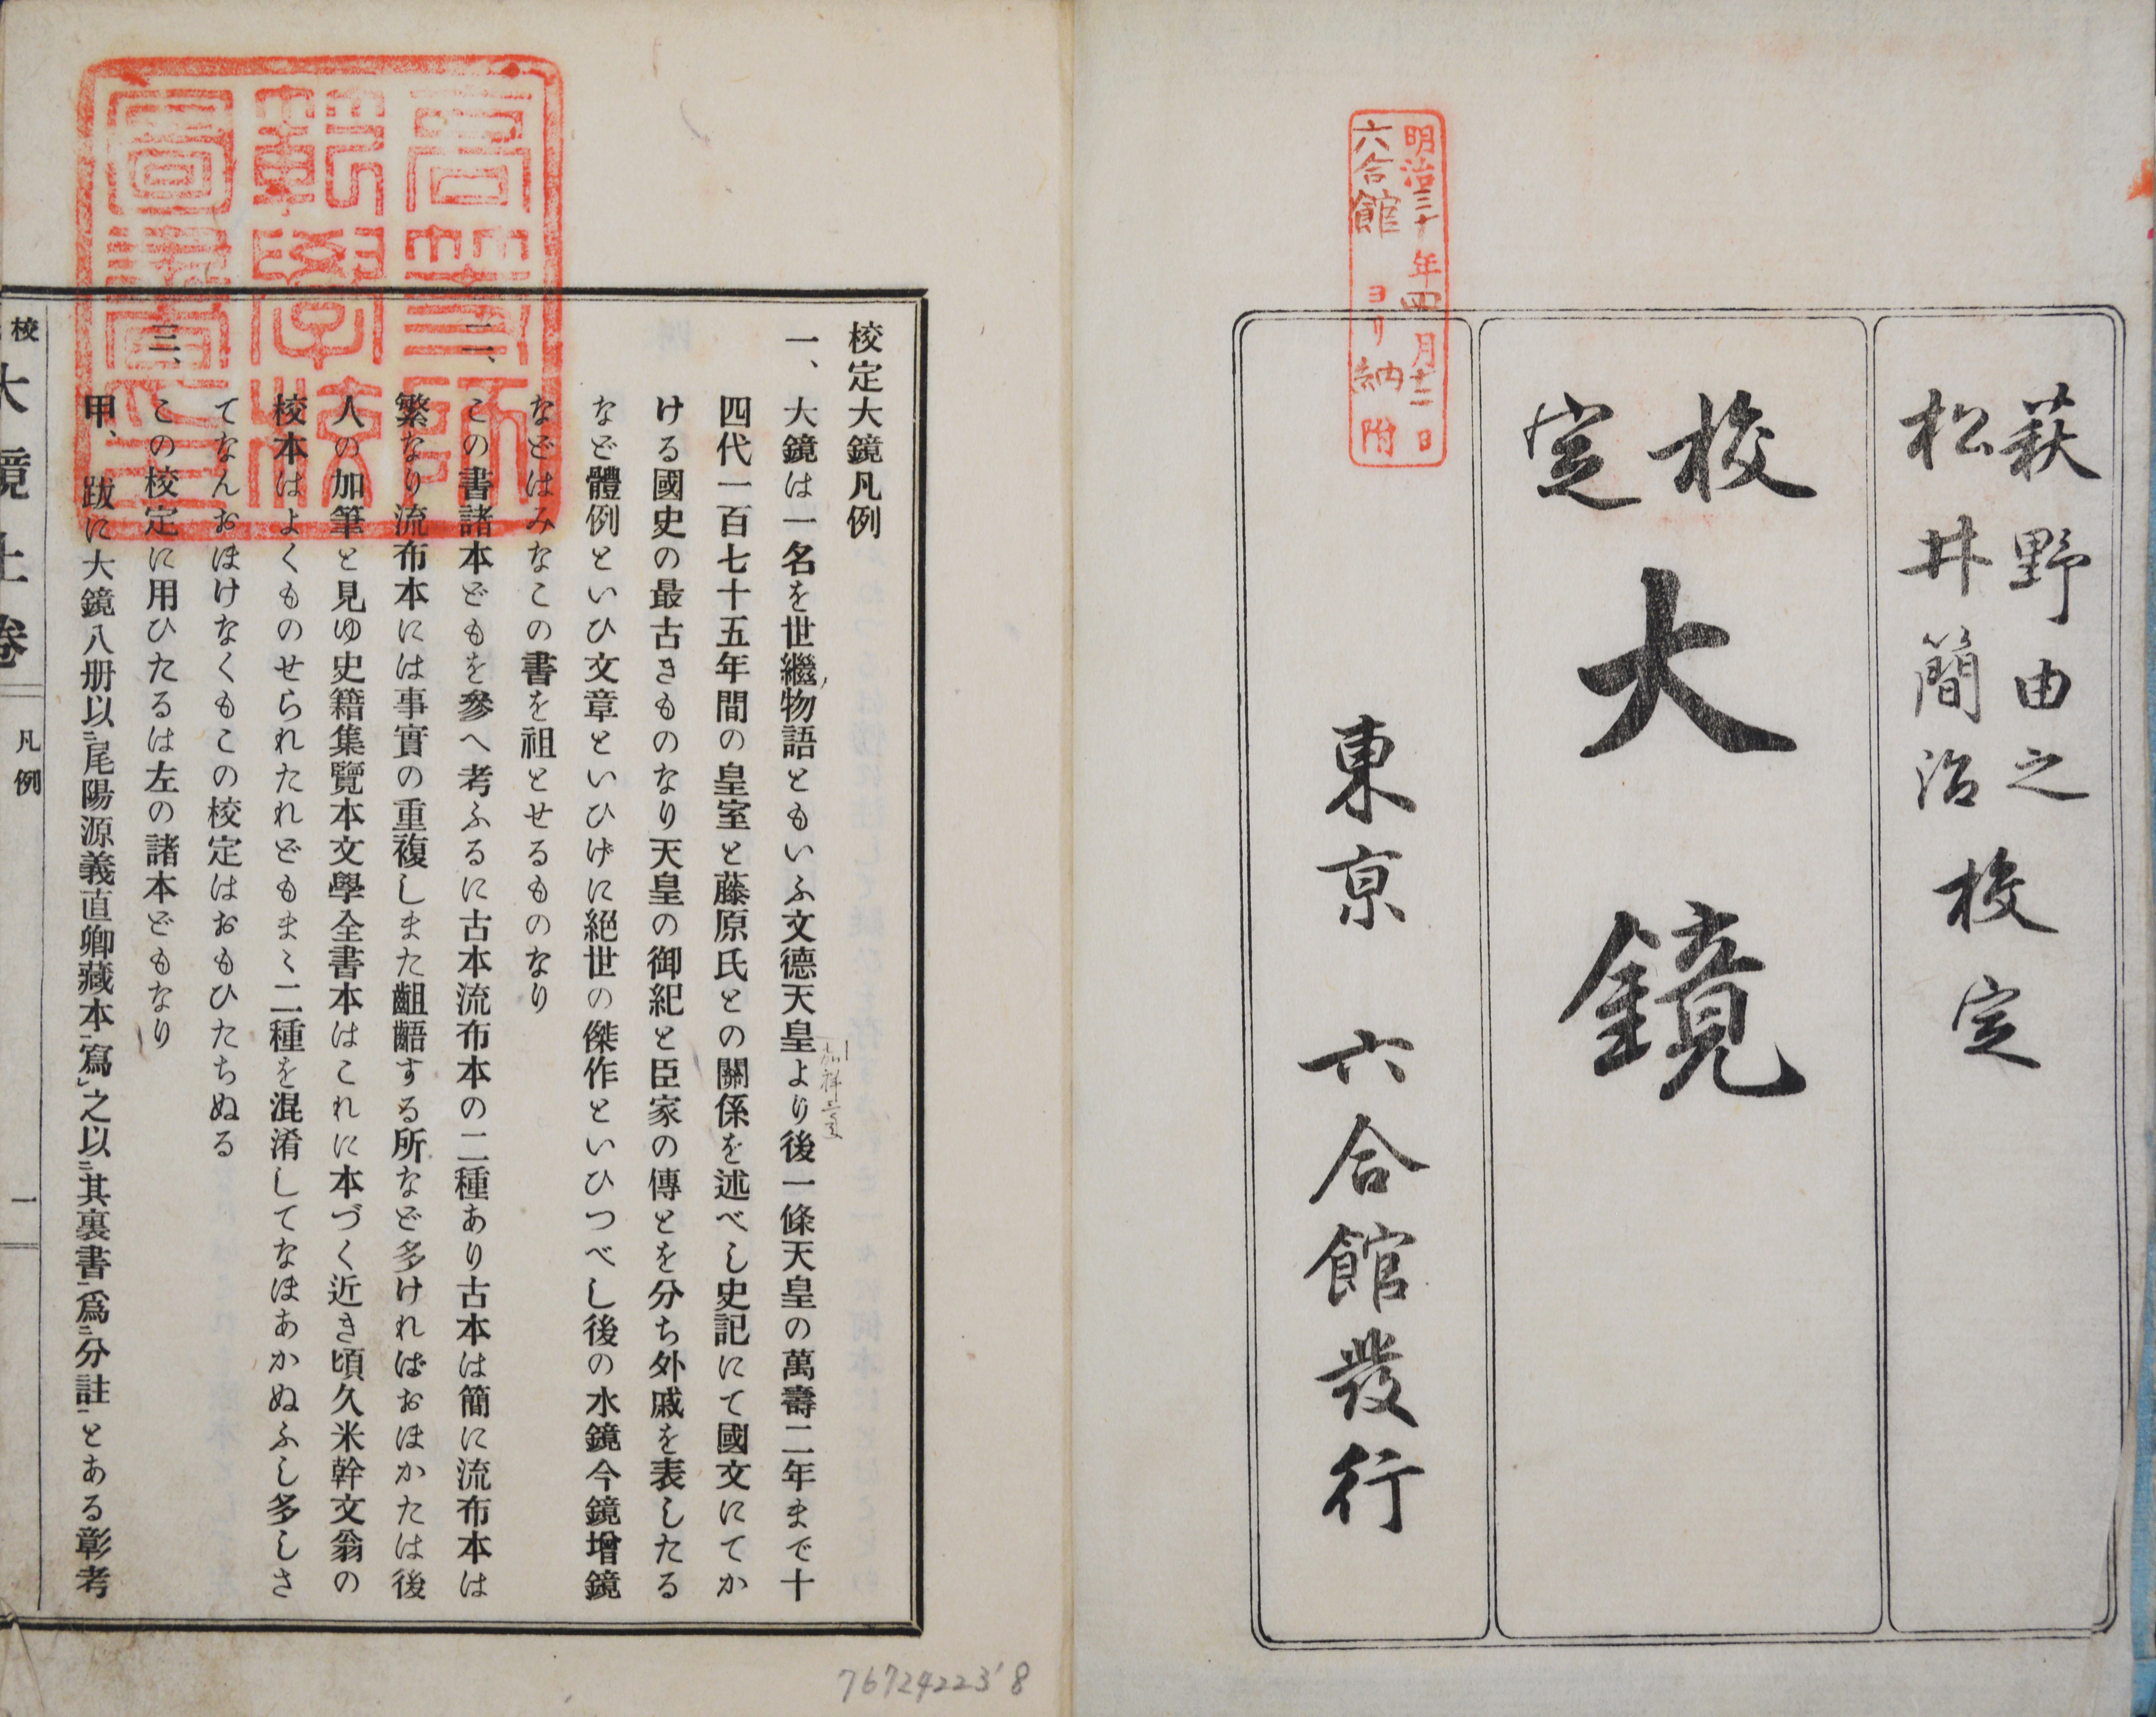 萩野由之
松井簡治
校定
校定
大鏡
東京 六合館發行
明治三十年四月十二日
六合館ヨリ納附
高等師
範學校
圖書印
校定大鏡凡例
一、大鏡は一名を世繼物語ともいふ文德天皇より後一條天皇の萬壽二年まで十
四代一百七十五年間の皇室と藤原氏との關係を述べし史記にて國文にてか
ける國史の最古きものなり天皇の御紀と臣家の傳とを分ち外戚を表したる
など體例といひ文章といひげに絕世の傑作といひつべし後の水鏡今鏡增鏡
などはみなこの書を祖とせるものなり
二、この書諸本どもを參へ考ふるに古本流布本の二種あり古本は簡に流布本は
繁なり流布本には事實の重複しまた齟齬する所など多ければおほかたは後
人の加筆と見ゆ史籍集覽本文學全書本はこれに本づく近き頃久米幹文翁の
校本はよくものせられたれどもまゝ二種を混淆してなほあかぬふし多しさ
てなんおほけなくもこの校定はおもひたちぬる
三、この校定に用ひたるは左の諸本どもなり
甲、跋に大鏡八册以㆓尾陽源義直卿藏本㆒寫㆑之以㆓其裏書㆒爲㆓分註㆒とある彰考
校 大鏡上卷 凡例 一
76724223'8